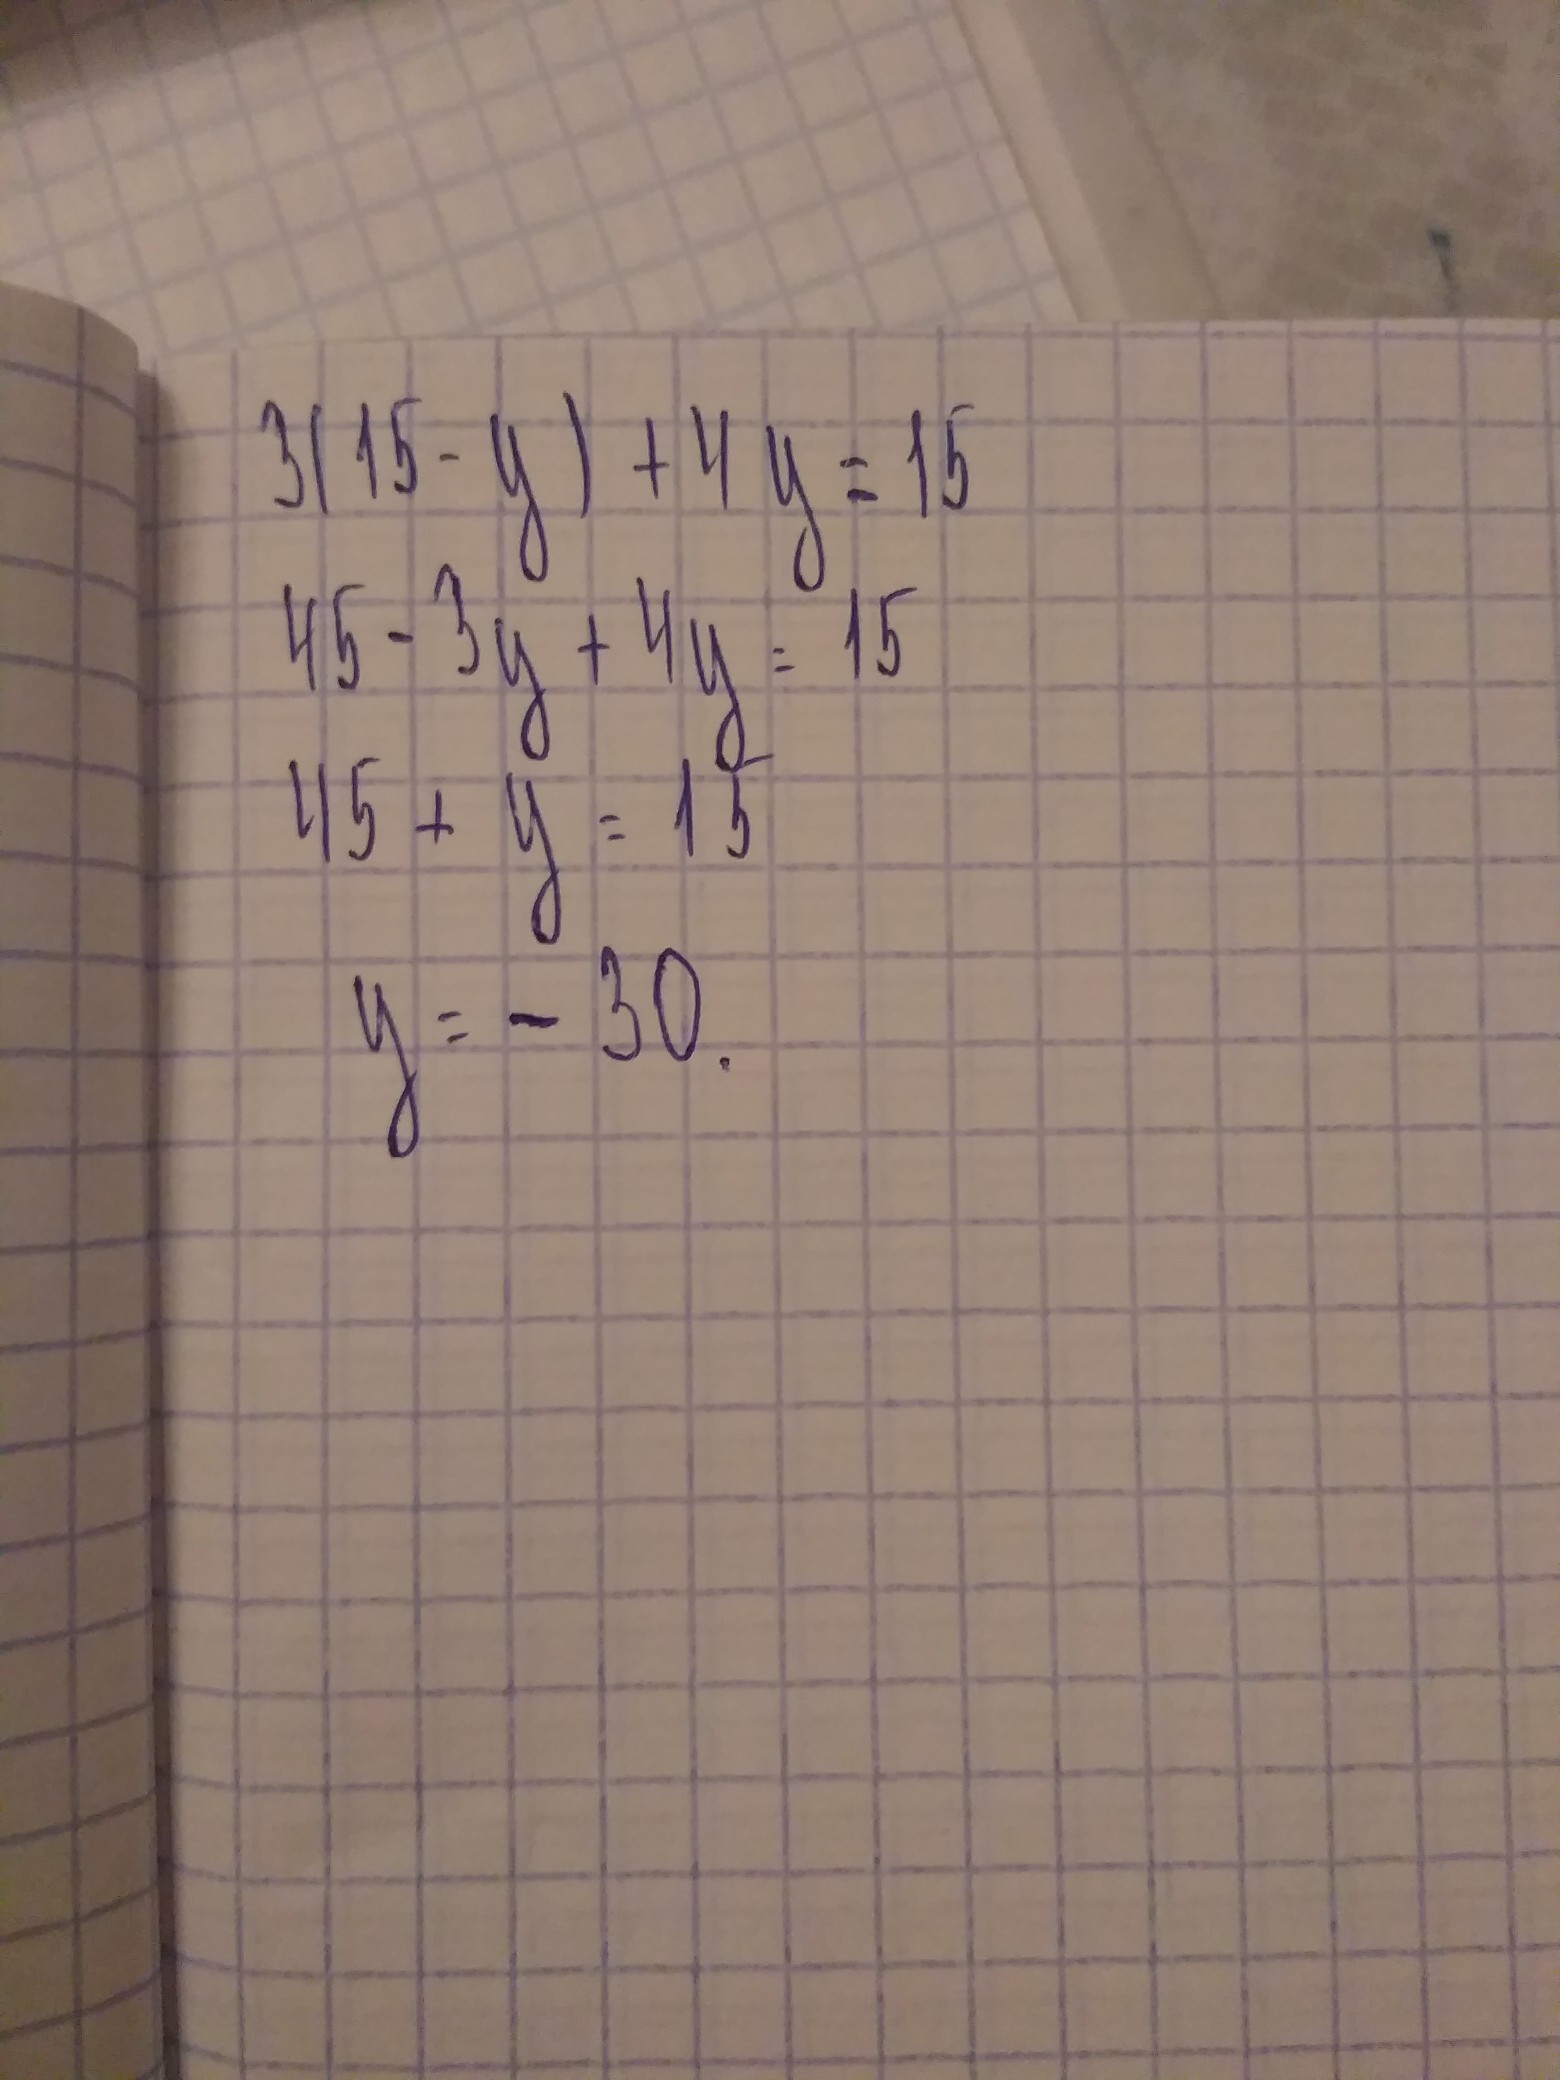 3(15 - y) + 4y = 15
45 - 3y + 4y = 15
45 + y = 15
y = - 30.